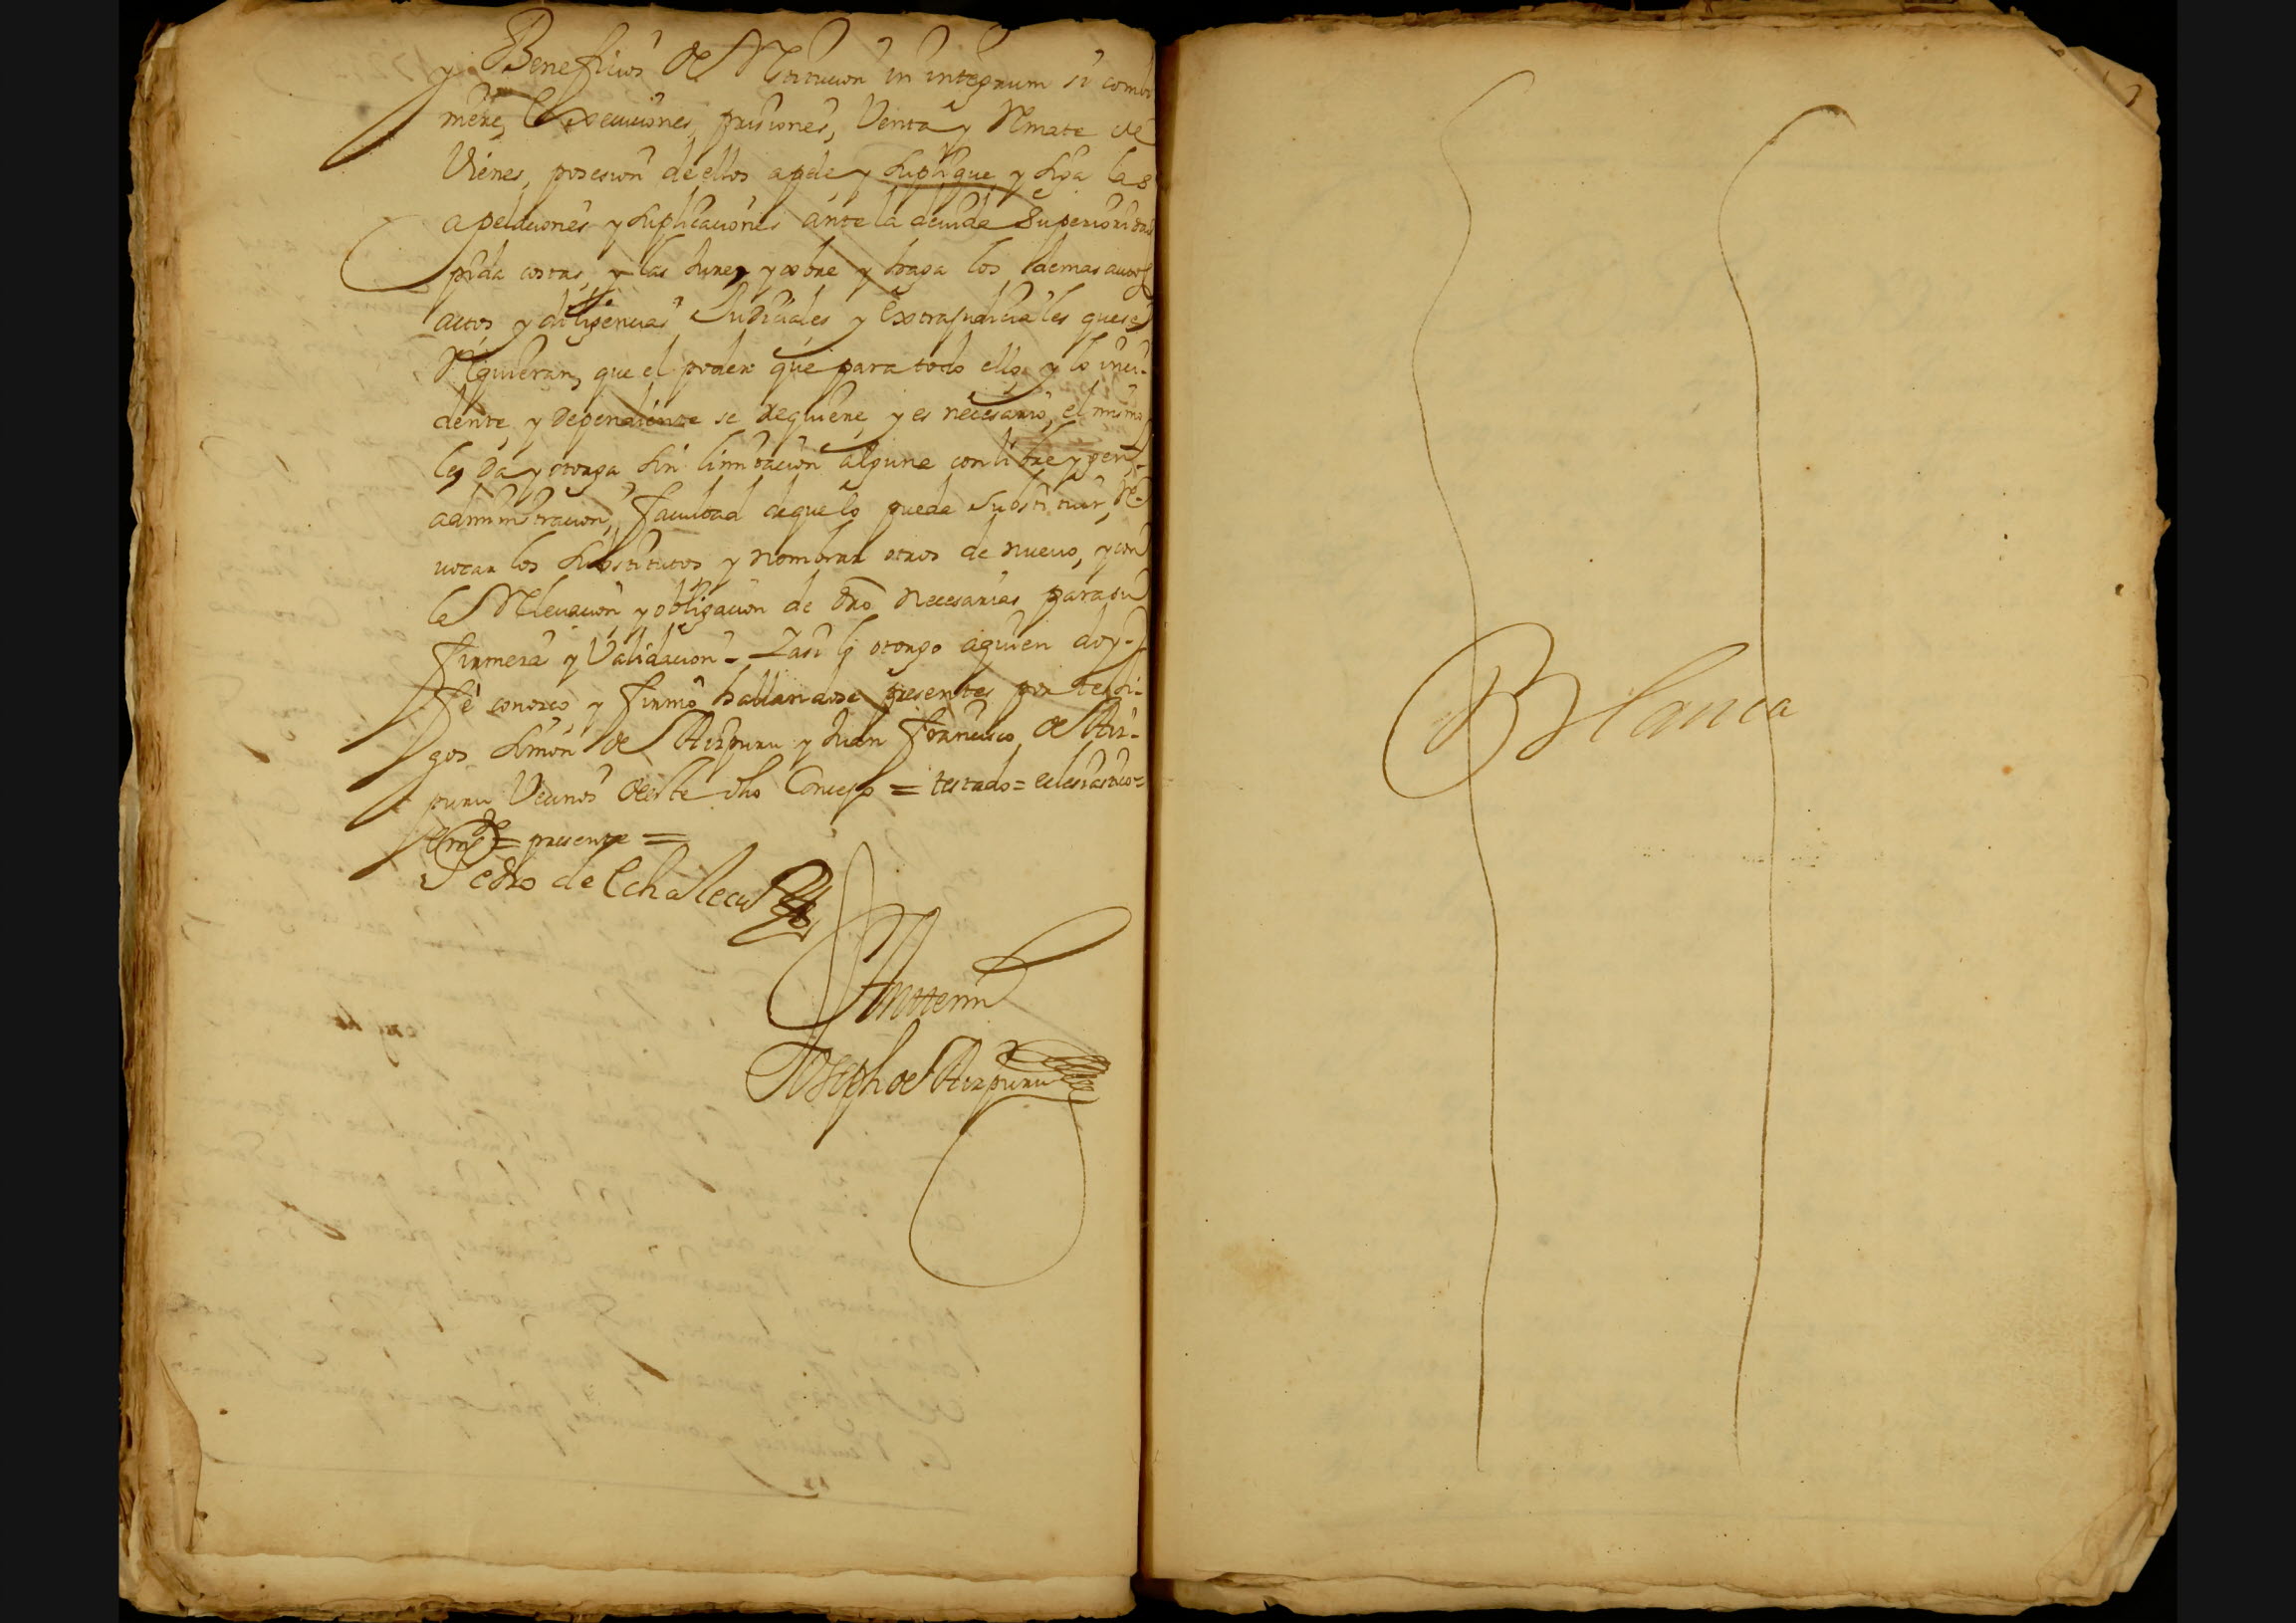 y Beneficios de Restitucion in integrum si combi
niere, Execuciones, prisiones, Venta y Remate de
Vienes, posesion de ellos apele y suplique, y siga las
apelaciones y suplicaciones ante la devida Superioridad
pida costas, y las Jure, y cobre y haga los demas autos
actos y diligencias Judiciales y Extrajudiciales que se
Requieran, que el poder que para todo ello y lo inci-
dente y dependiente se requiere, y es necesario, el mismo
les da y otorga sin limitacion alguna con libre y genl.
administracion, facultad de que lo pueda substituir, Re-
vocar los substitutos y nombrar otros de nuevo, y con
la Relevacion y obligacion de dro necesarias para su
firmeza y Validacion = Y asi lo otorgo a quien doy
fe conozco, y firmo hallandose presentes por testi-
gos Simon de Aizpuru y Juan Francisco de Aiz-
puru Vecinos de este dho Concejo = testado = eclesiastico =
= presente =
Pedro de Echalecu
Antemi
Joseph de Aizpuru
Blanca